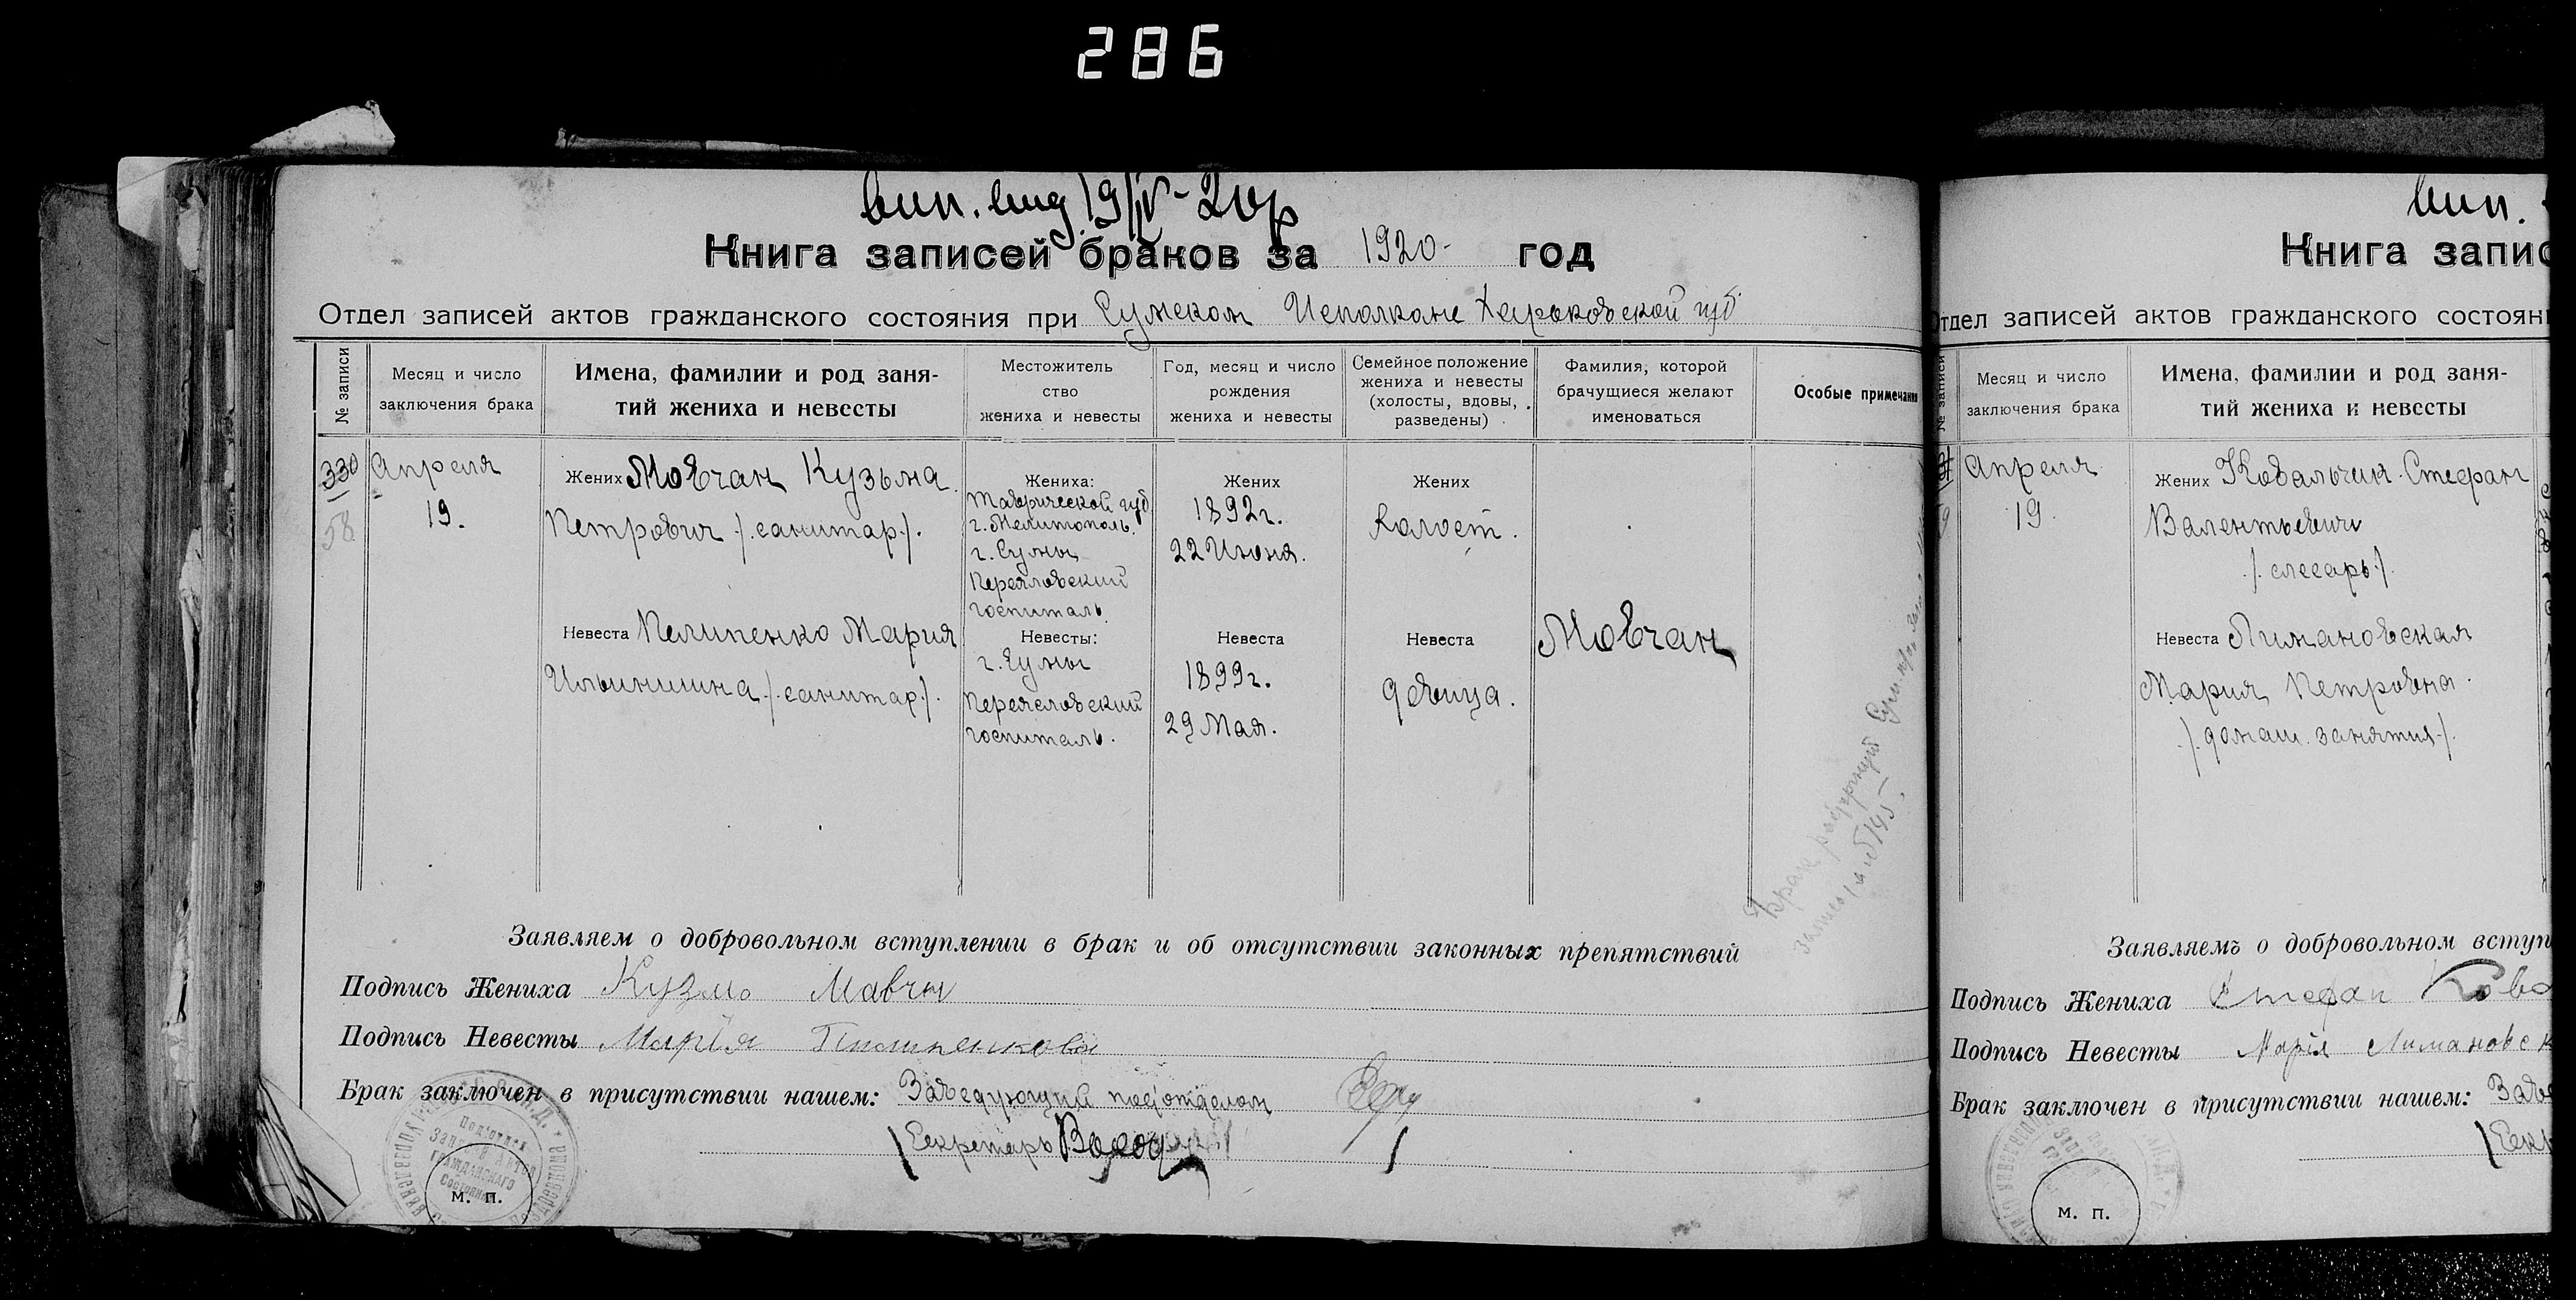 286
вип. вид. 19/IV-20р
Книга записей браков за 1920 год
Отдел записей актов гражданского состояния при Сумском Исполкоме Харьковской губ.
№ записи
Месяц и число
заключения брака
Имена, фамилии и род заня-
тий жениха и невесты
Местожитель
ство
жениха и невесты
Год, месяц и число
рождения
жениха и невесты
Семейное положение
жениха и невесты
(холосты, вдовы,
разведены)
Фамилия, которой
брачущиеся желают
именоваться
Особые примечани
330
58
Апреля
19.
Жених Мовчан Кузьма
Петрович /.санитар./.
Невеста Пелипенко Мария
Ильинишна /.санитар./.
Жениха:
Таврической губ.
г. Мелитополь.
г. Сумы
Переяловский
госпиталь.
Невесты:
г. Сумы
Переясловский
госпиталь.
Жених
1892 г.
22 Июня.
Невеста
1899 г.
29 Мая.
Жених
Холост.
Невеста
девица.
Мовчан
Брак
Заявляем о добровольном вступлении в брак и об отсутствии законных препятствий
Подпись Жениха Кузмо Мавчн
Подпись Невесты Марія
Брак заключен в присутствии нашем: Заведующий подотделом
/Секретарь /
Подотдел
Записей Актов
Гражданского
Состояния
м. п.
вип.
Книга запис
Отдел записей актов гражданского состоян
№ записи
Месяц и число
заключения брака
Имена, фамилии и род заня-
тий жениха и невесты
Апреля
19.
Жених Ковальчик Стефан
Валентьевич
/.слесарь./
Невеста Лимановская
Мария Петровна.
/.домаш. занятия./.
Заявляемъ о добровольном вступ
Подпись Жениха Стефан Кова
Подпись Невесты Марія Лимановск
Брак заключен в присутствии нашем: Заве
/Секр
м. п.